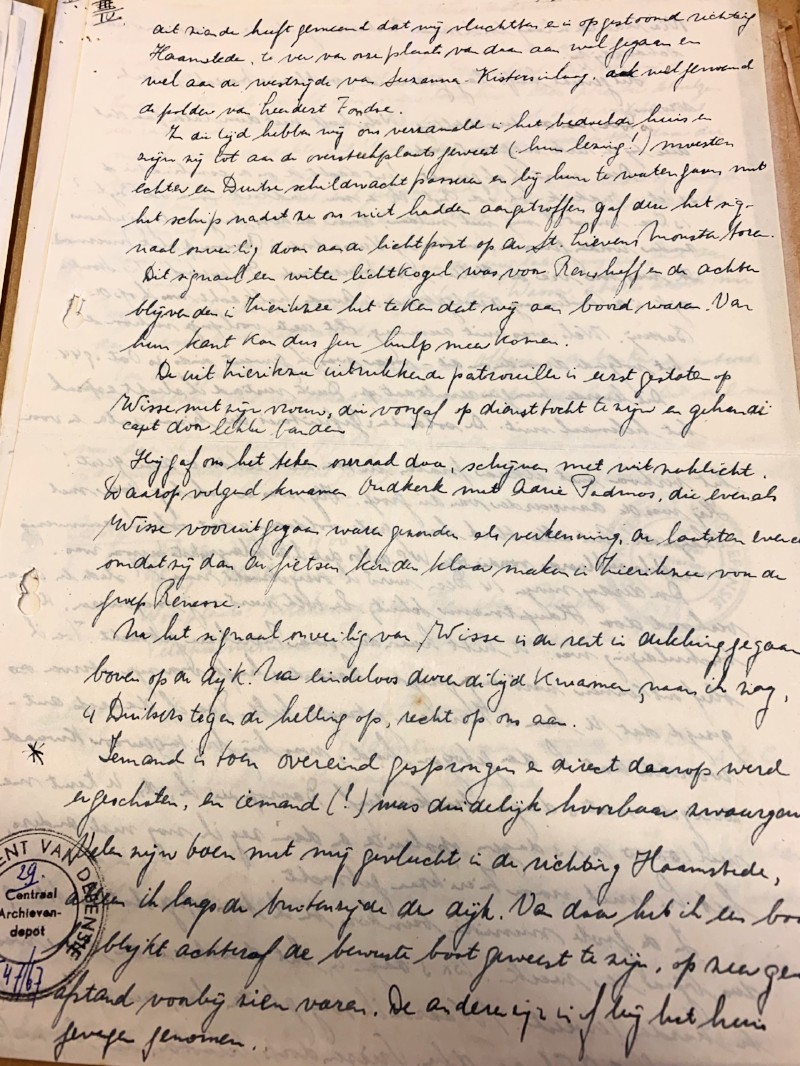 IV
dit ziende heeft gemeend dat wij vluchtten en is opgestoomd richting
Haamstede, te ver van onze plaats vandaan aan wal gegaan en
wel aan de westzijde van Suzanna- Kistersinlaag. ook wel genoemd
de polder van Leendert Fondse.
In die tijd hebben wij ons verzameld in het bedoelde huis en
zijn zij tot aan de oversteekplaats geweest (hun lezing!) moesten
echter een Duitse schildwacht passeren en bij hun te water gaan met
het schip nadat ze ons niet hadden aangetroffen gaf deze het sig-
naal onveilig door aan de lichtpost op de St. Lievens Monster toren.
Dit signaal een witte lichtkogel was voor en de achter
blijvenden in Zierikzee het teken dat wij aan boord waren. Van
hun kant kon dus geen hulp meer komen.
De uit Zierikzee uitrukkende patrouille is eerst gestoten op
Wisse met zijn vrouw, die voorgaf op diensttocht te zijn en gehandi
capt door lekke banden
Hij gaf ons het teken onraad door, schijnen met wit zaklicht.
Daarop volgend kwamen Oudkerk met Adrie Padmos, die evenals
Wisse vooruitgegaan waren gezonden als verkenning, de laatsten
omdat zij dan de fietsen konden klaar maken in Zierikzee voor de
groep Renesse.
Na het signaal onveilig van Wisse is de rest in dekking gegaan
boven op de dijk. Na eindeloos durende tijd kwamen, naar ik zag,
4 Duitsers tegen de helling op, recht op ons aan.
* Iemand is toen overeind gesprongen en direct daarop werd
er geschoten, en iemand (!) was duidelijk hoorbaar
Velen zijn toen met mij gevlucht in de richting Haamstede,
alleen ik langs de buitenzijde der dijk. Van daar heb ik een
blijkt achteraf de bewuste boot geweest te zijn, op zeer
afstand voorbij zien varen. De anderen zijn in of bij het huis
gevangen genomen.
ENT VAN DEFENSIE
29.
Centraal
Archieven-
depot
47/67